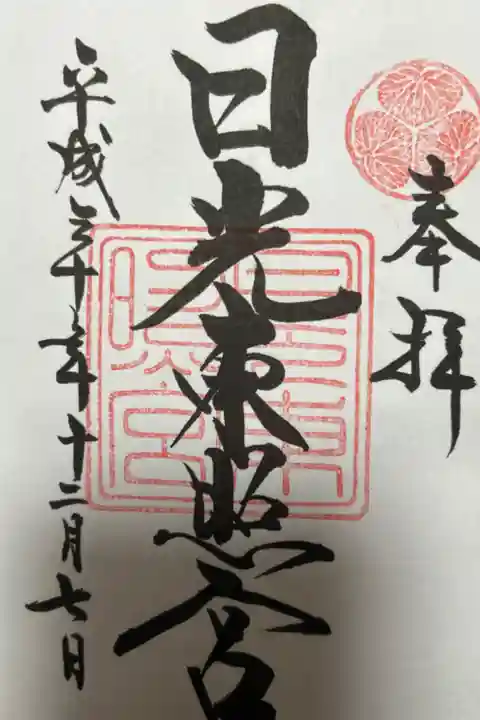 奉拝
日光東照宮
平成三十年十二月七日